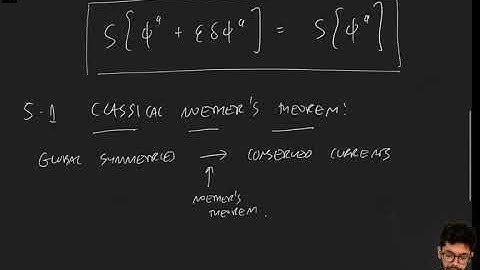 S[ϕᵃ + εδϕᵃ] = S[ϕᵃ]
5.1 CLASSICAL NOETHER'S THEOREM:
GLOBAL SYMMETRIES → CONSERVED CURRENTS
↑
NOETHER'S
THEOREM.